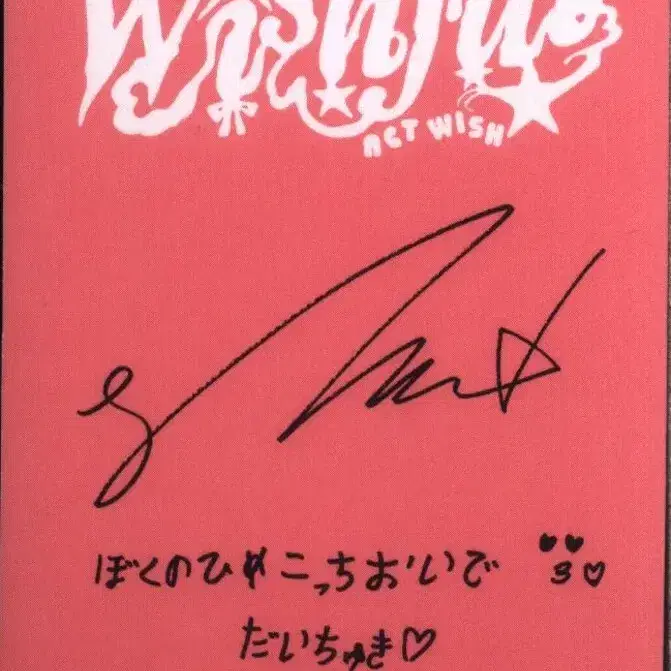 Wishful
ACT WISH
ぼくのひめこっちおいで 3♡
だいちゅき♡